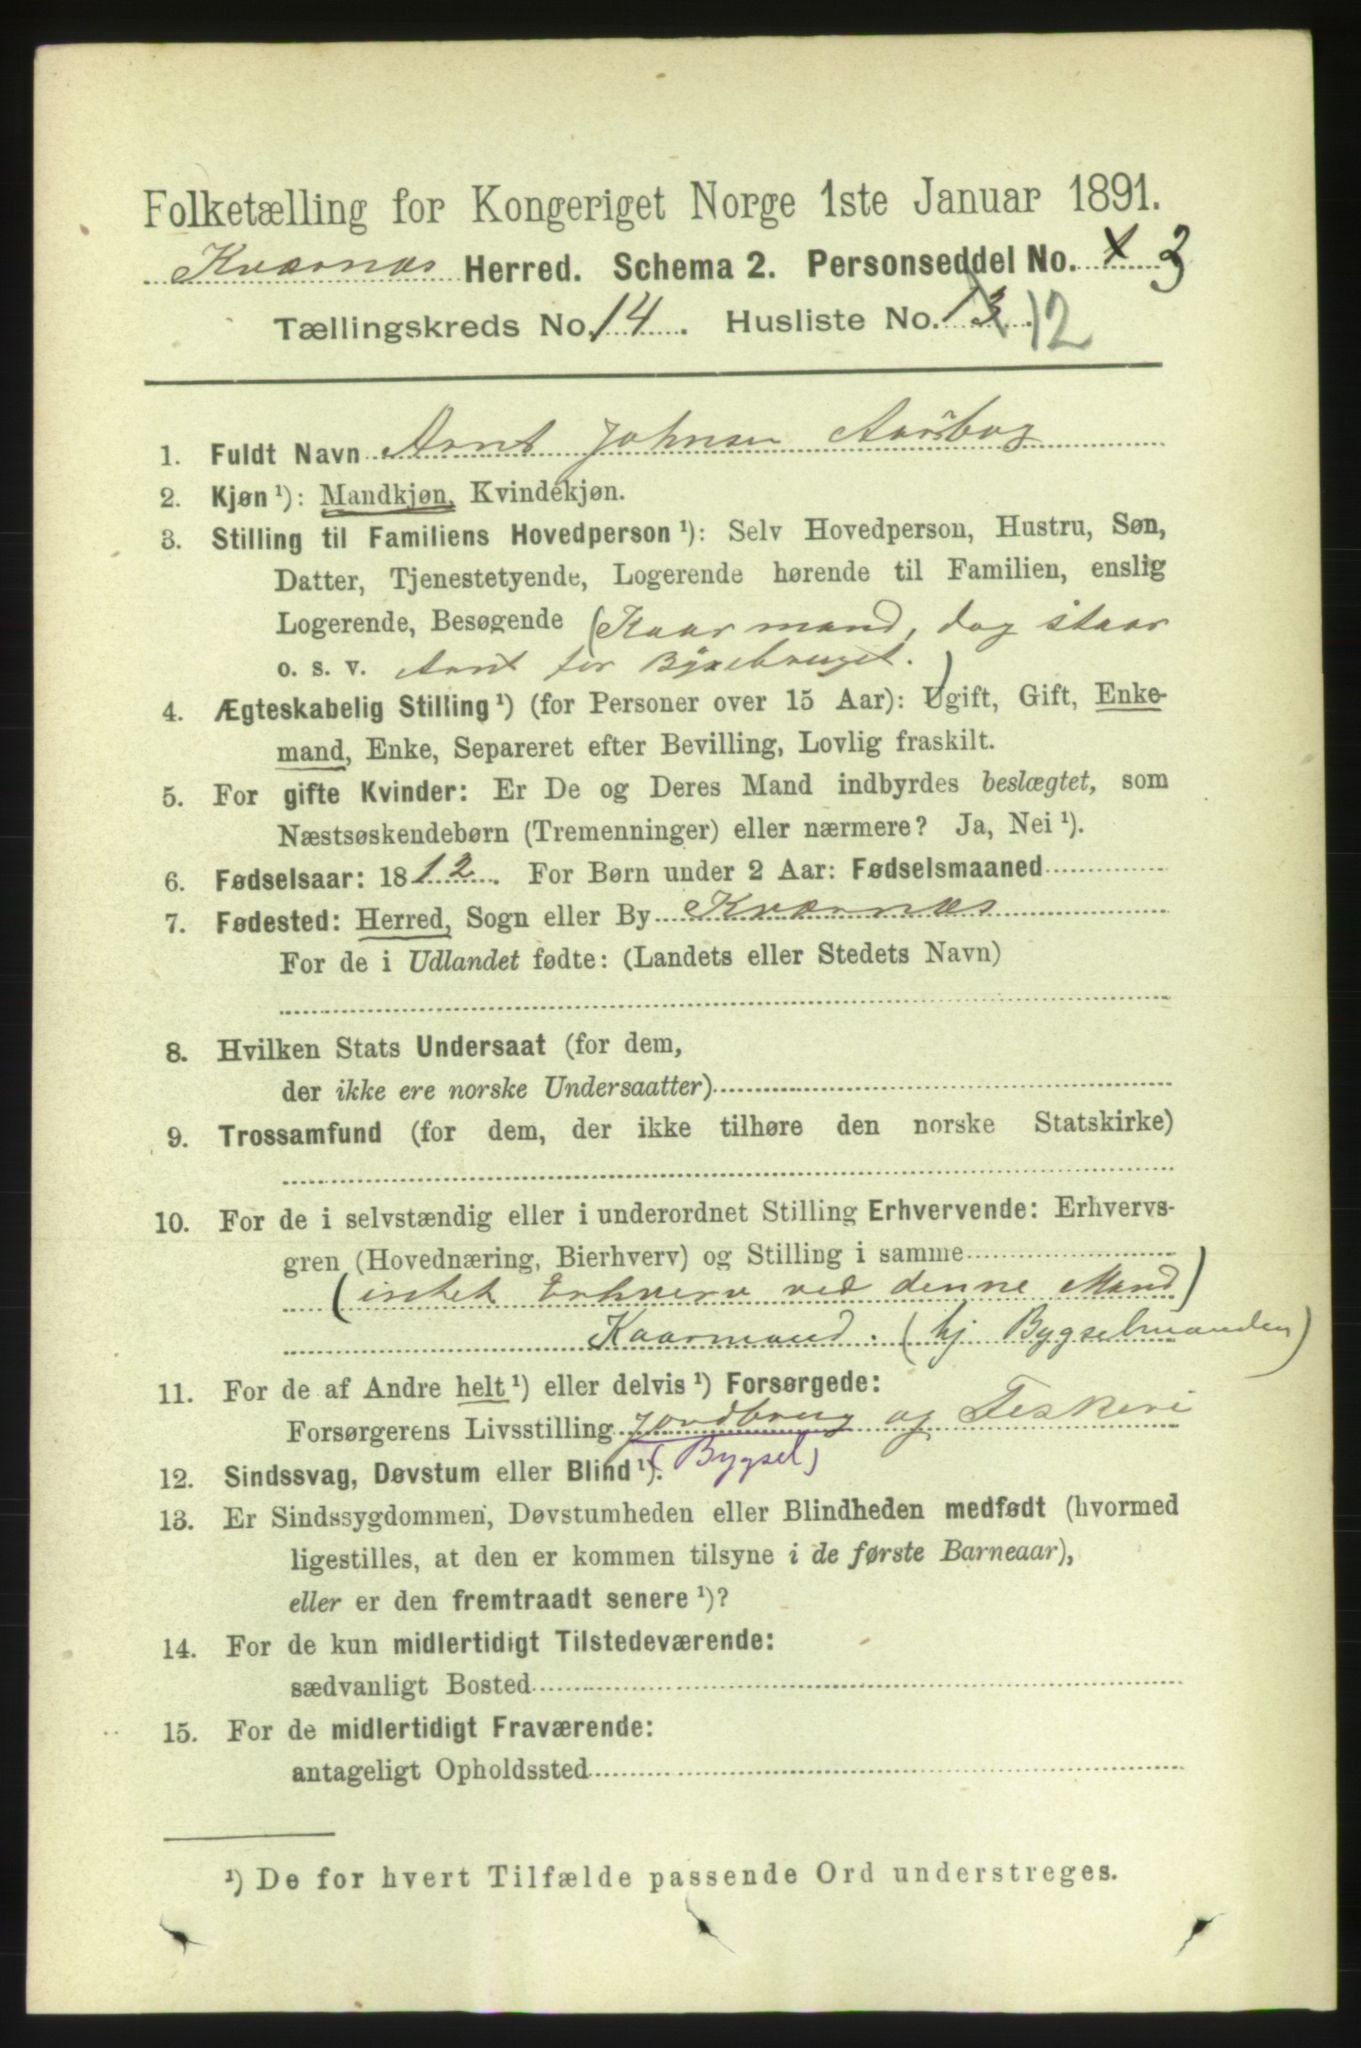 Folketælling for Kongeriget Norge 1ste Januar 1891.
Kværnæs Herred. Schema 2. Personseddel No. 3
Tællingskreds No. 14. Husliste No. 13 12
1. Fuldt Navn Arnt Johnsen Aarsbog
2. Kjøn ¹): Mandkjøn, Kvindekjøn.
3. Stilling til Familiens Hovedperson ¹): Selv Hovedperson, Hustru, Søn,
Datter, Tjenestetyende, Logerende hørende til Familien, enslig
Logerende, Besøgende (Kaarmand, dog staar
o. s. v. Arnt for Bygselbruget.)
4. Ægteskabelig Stilling ¹) (for Personer over 15 Aar): Ugift, Gift, Enke-
mand, Enke, Separeret efter Bevilling, Lovlig fraskilt.
5. For gifte Kvinder: Er De og Deres Mand indbyrdes beslægtet, som
Næstsøskendebørn (Tremenninger) eller nærmere? Ja, Nei ¹).
6. Fødselsaar: 1812. For Børn under 2 Aar: Fødselsmaaned
7. Fødested: Herred, Sogn eller By Kværnæs
For de i Udlandet fødte: (Landets eller Stedets Navn)
8. Hvilken Stats Undersaat (for dem,
der ikke ere norske Undersaatter)
9. Trossamfund (for dem, der ikke tilhøre den norske Statskirke)
10. For de i selvstændig eller i underordnet Stilling Erhvervende: Erhvervs-
gren (Hovednæring, Bierhverv) og Stilling i samme
(intet Erhverv ved denne Mand)
Kaarmand. (hj Bygselmanden)
11. For de af Andre helt ¹) eller delvis ¹) Forsørgede:
Forsørgerens Livsstilling Jordbrug og Feskeri
(Bygsel)
12. Sindssvag, Døvstum eller Blind ¹).
13. Er Sindssygdommen, Døvstumheden eller Blindheden medfødt (hvormed
ligestilles, at den er kommen tilsyne i de første Barneaar),
eller er den fremtraadt senere ¹)?
14. For de kun midlertidigt Tilstedeværende:
sædvanligt Bosted
15. For de midlertidigt Fraværende:
antageligt Opholdssted
¹) De for hvert Tilfælde passende Ord understreges.